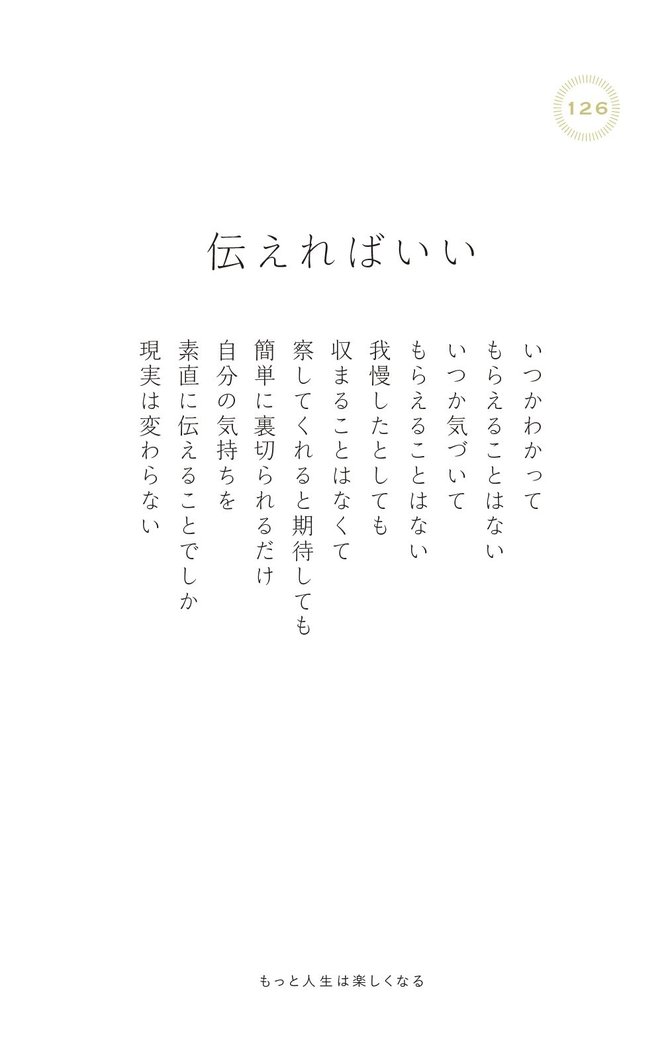 126
伝えればいい
いつかわかって
もらえることはない
いつか気づいて
もらえることはない
我慢したとしても
収まることはなくて
察してくれると期待しても
簡単に裏切られるだけ
自分の気持ちを
素直に伝えることでしか
現実は変わらない
もっと人生は楽しくなる